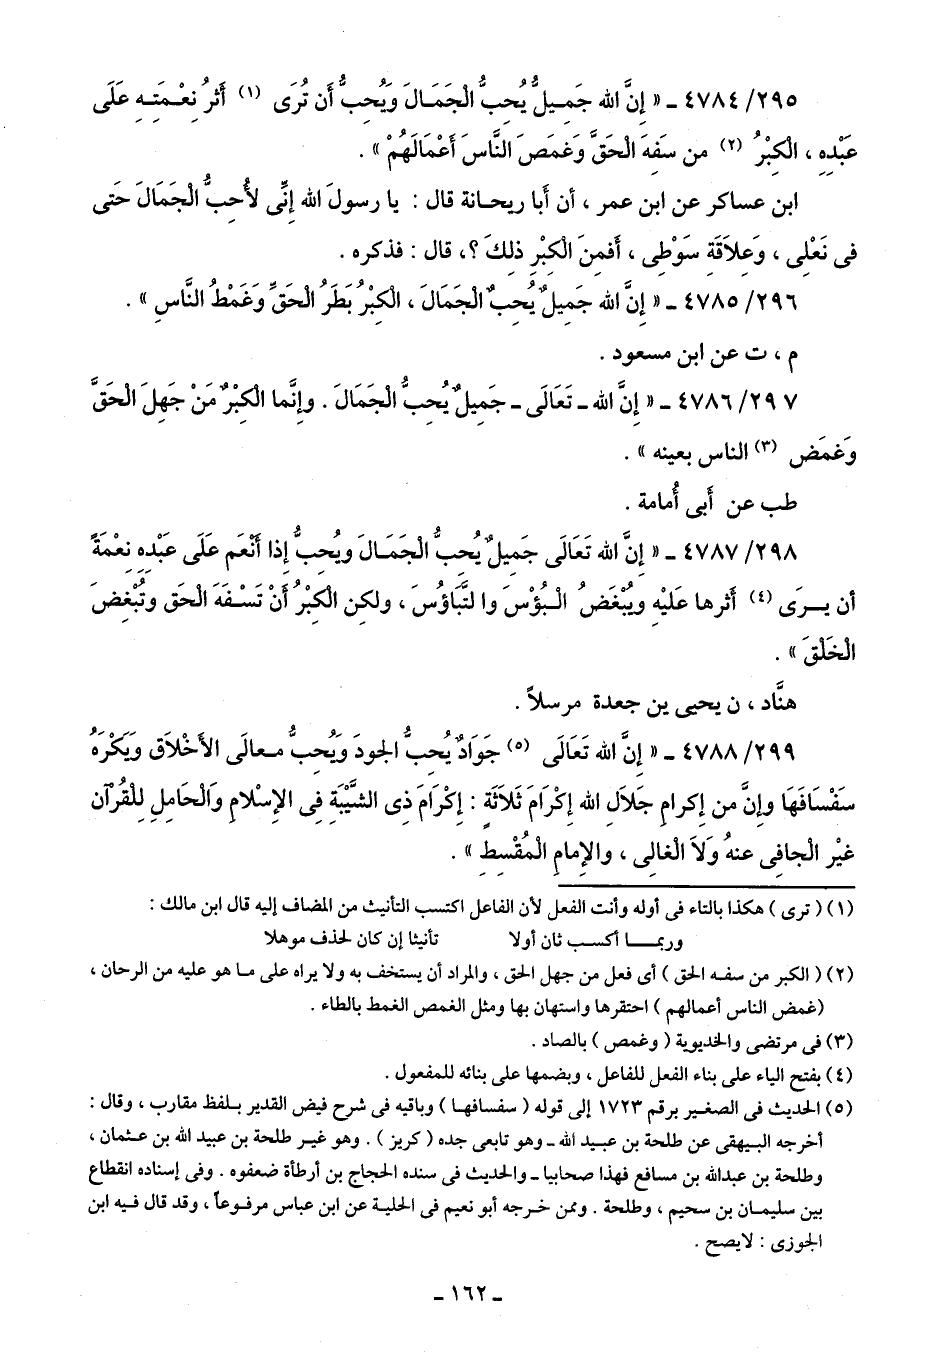 ٤٧٨٤/٢٩٥ ـ « إنَّ الله جَمِيلٌ يُحِبُّ الْجَمَالَ وَيُحِبُّ أن تُرَى (١) أَثرُ نِعْمَتِهِ عَلَى
عَبْدِهِ ، الْكِبْرُ (٢) من سَفِهَ الْحَقَّ وَغَمَصَ النَّاسَ أَعْمَالَهُمْ » .
ابن عساكر عن ابن عمر ، أن أَبا ريحانة قال : يا رسولَ الله إنِّى لأُحِبُّ الْجَمَالَ حَتى
فى نَعْلِى ، وَعِلاَقَةِ سَوْطِى ، أفَمِنَ الْكِبْرِ ذلِكَ ؟، قال : فذكره .
٤٧٨٥/٢٩٦ ـ « إنَّ الله جَمِيلٌ يُحِبُّ الْجَمَالَ ، الْكِبْرُ بَطَرُ الْحَقِّ وَغَمْطُ النَّاسِ » .
م ، ت عن ابن مسعود .
٤٧٨٦/٢٩٧ ـ « إنَّ الله ـ تَعَالَى ـ جَمِيلٌ يُحِبُّ الْجَمَالَ . وإنَّما الْكِبْرُ مَنْ جَهِلَ الْحَقَّ
وَغَمَض (٣) الناس بعينه » .
طب عن أَبى أُمامة .
٤٧٨٧/٢٩٨ ـ « إنَّ الله تَعَالَى جَمِيلٌ يُحِبُّ الْجَمَالَ ويُحِبُّ إذا أنْعَم عَلَى عَبْدِهِ نِعْمَةً
أن يـرَى (٤) أثرها عَلَيْهِ ويُبْغَضُ الْبُؤْسَ والتَّبَاؤُسَ ، ولكن الْكِبْرُ أنْ تَسْفَهَ الْحق وتُبْغِضَ
الْخَلْقَ » .
هنَّاد ، ن يحيى ين جعدة مرسلاً .
٤٧٨٨/٢٩٩ ـ « إنَّ الله تَعَالَى (٥) جَوَادٌ يُحِبُّ الجودَ وَيُحِبُّ معالَى الأَخْلاَقِ وَيَكْرَهُ
سَفْسَافَهَا وإنَّ من إكرام جَلاَلِ الله إكْرَامَ ثَلاَثَةٍ : إكْرَامَ ذِى الشَّيْبَةِ فِى الإسْلاَمِ وَالْحَامِلِ لِلْقُرآن
غيْر الْجافِى عنهُ وَلاَ الْغالِى ، والإمام الْمُقْسِطِ » .
(١) ( ترى ) هكذا بالتاء فى أوله وأنت الفعل لأن الفاعل اكتسب التأنيث من المضاف إليه قال ابن مالك :
وربمـــا أكسب ثان أولا تأنيثا إن كان لحذف موهلا
(٢) ( الكبر من سفه الحق ) أى فعل من جهل الحق ، والمراد أن يستخف به ولا يراه على ما هو عليه من الرحان ،
(غمض الناس أعمالهم ) احتقرها واستهان بها ومثل الغمص الغمط بالطاء .
(٣) فى مرتضى والخديوية ( وغمص ) بالصاد .
(٤) بفتح الياء على بناء الفعل للفاعل ، وبضمها على بنائه للمفعول .
(٥) الحديث فى الصغير برقم ١٧٢٣ إلى قوله ( سفسافها ) وباقيه فى شرح فيض القدير بلفظ مقارب ، وقال :
أخرجه البيهقى عن طلحة بن عبيد الله ـ وهو تابعى جده ( كريز ) . وهو غير طلحة بن عبيد الله بن عثمان ،
وطلحة بن عبدالله بن مسافع فهذا صحابيا ـ والحديث فى سنده الحجاج بن أرطأة ضعفوه . وفى إسناده انقطاع
بين سليمان بن سحيم ، وطلحة . وممن خرجه أبو نعيم فى الحلية عن ابن عباس مرفوعاً ، وقد قال فيه ابن
الجوزى : لايصح .
ـ ١٦٢ ـ